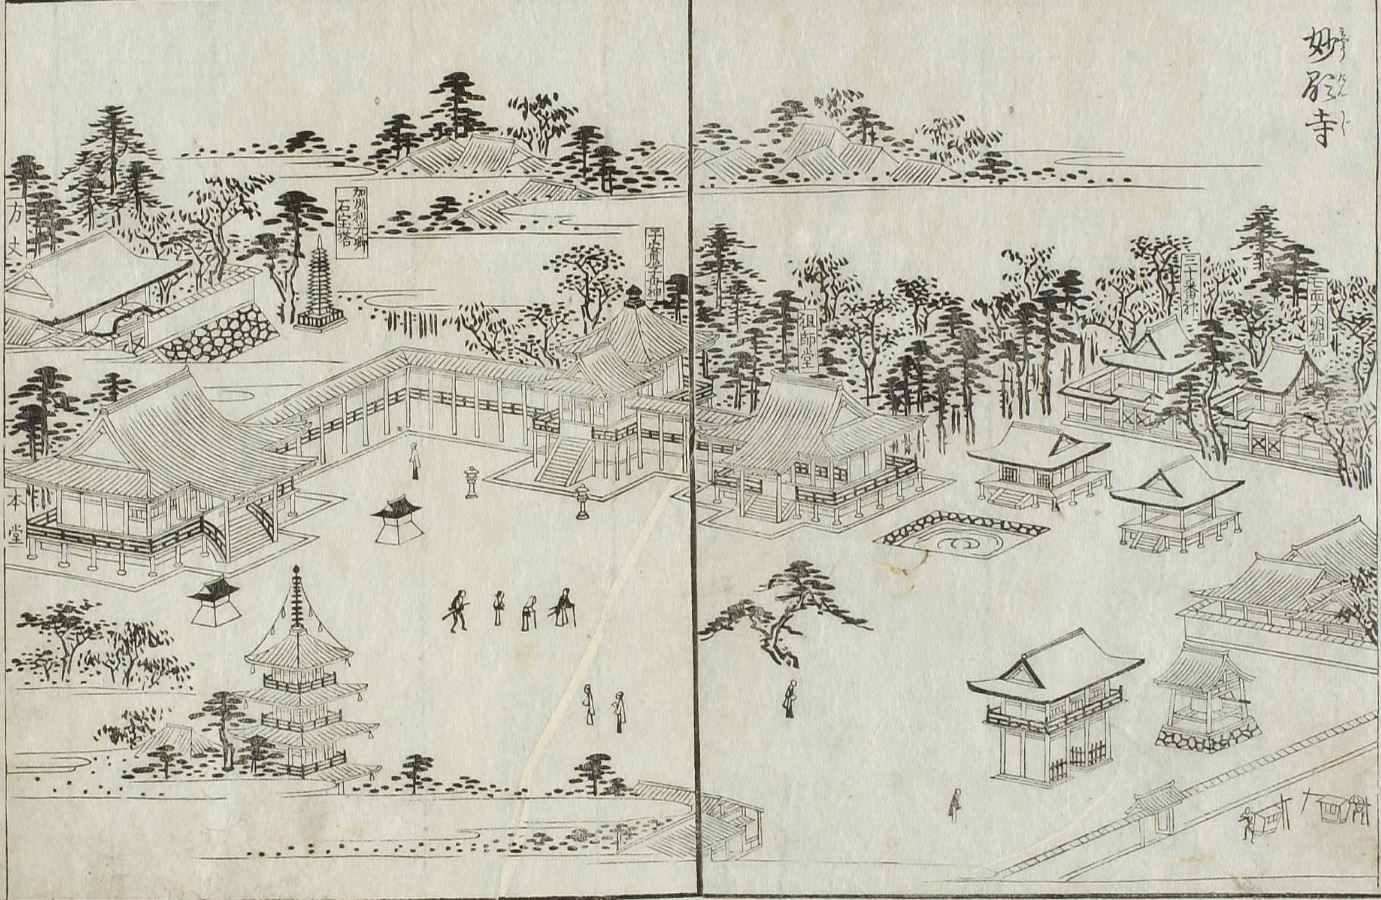 妙顕寺
七面大明神
三十番神
祖師堂
子安鬼子母神
加州利光卿
石宝塔
方丈
本堂